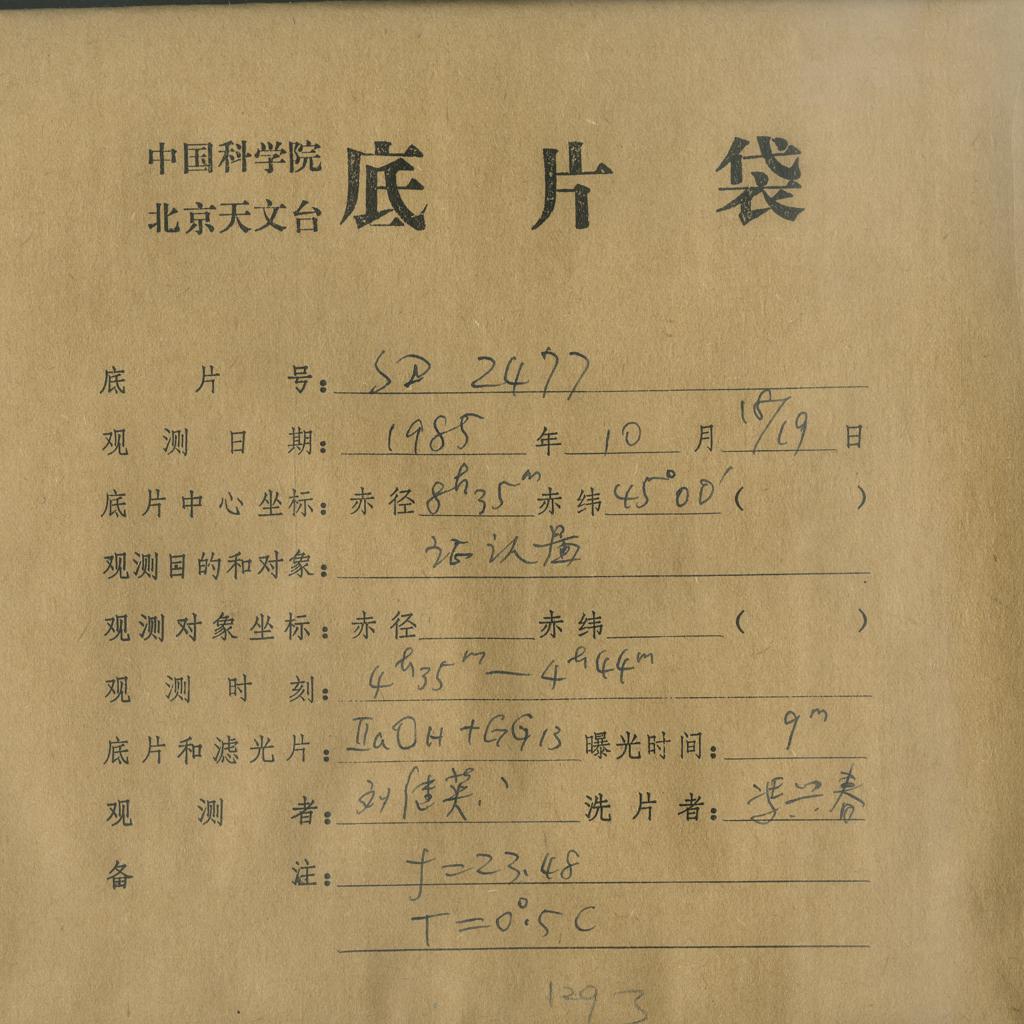 中国科学院
北京天文台
底片袋
底片号：SD 2477
观测日期：1985年10月18/19日
底片中心坐标：赤径8ʰ35ᵐ赤纬45°00′（ ）
观测目的和对象：证认量
观测对象坐标：赤径 赤纬 （ ）
观测时刻：4ʰ35ᵐ—4ʰ44ᵐ
底片和滤光片：ⅡaOH+GG13 曝光时间：9ᵐ
观测者：刘健英 洗片者：冯兴春
备注：f=23.48
T=0°.5C
129 3